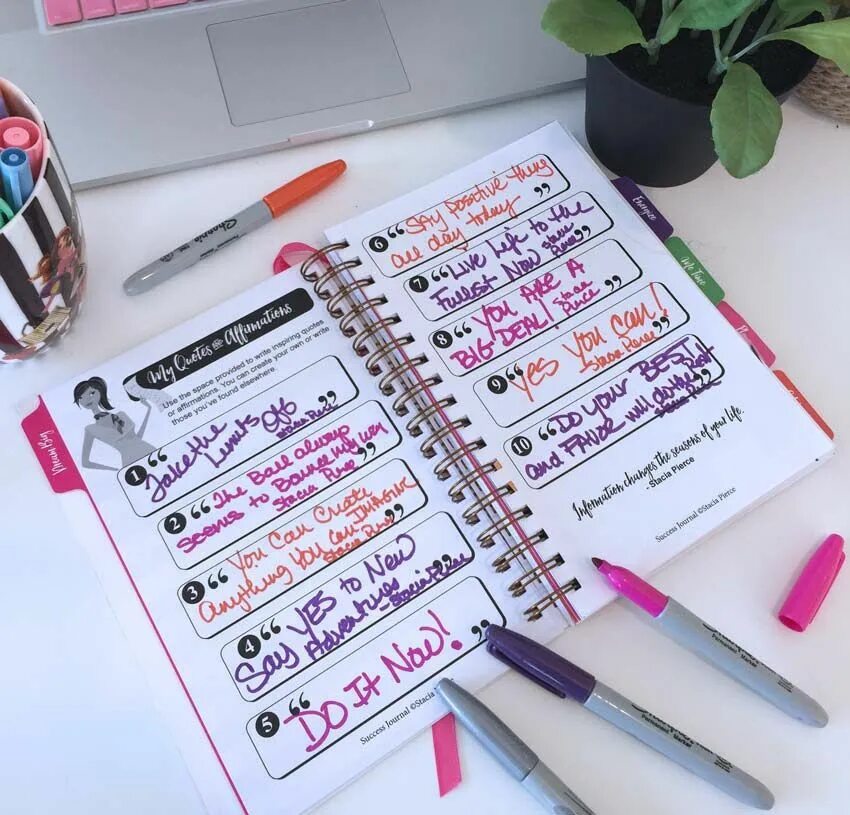 My Quotes and Affirmations
Use the space provided to write inspiring quotes
or affirmations. You can create your own or write
those you've found elsewhere.
1 “ Take the
Limits Off ”
Stacia Pierce
2 “ The Ball always
seems to Bounce My Way ”
Stacia Pierce
3 “ You Can Create
anything YOU Can IMAGINE ”
Stacia Pierce
4 “ Say YES to New
Adventures ”
- Stacia Pierce
5 “ DO IT NOW! ”
Success Journal ©Stacia Pierce
6 “ SAY positive things
all day today ”
7 “ Live Life to the
Fullest Now ”
Stacia Pierce
8 “ YOU ARE A
BIG DEAL! ”
Stacia Pierce
9 “ Yes You Can! ”
Stacia Pierce
10 “ Do Your BEST
and FAVOR will do the Rest ”
Stacia Pierce
Information changes the seasons of your life.
- Stacia Pierce
Success Journal ©Stacia Pierce
Energize
Me Time
Sharpie
Permanent Marker
Permanent Marker